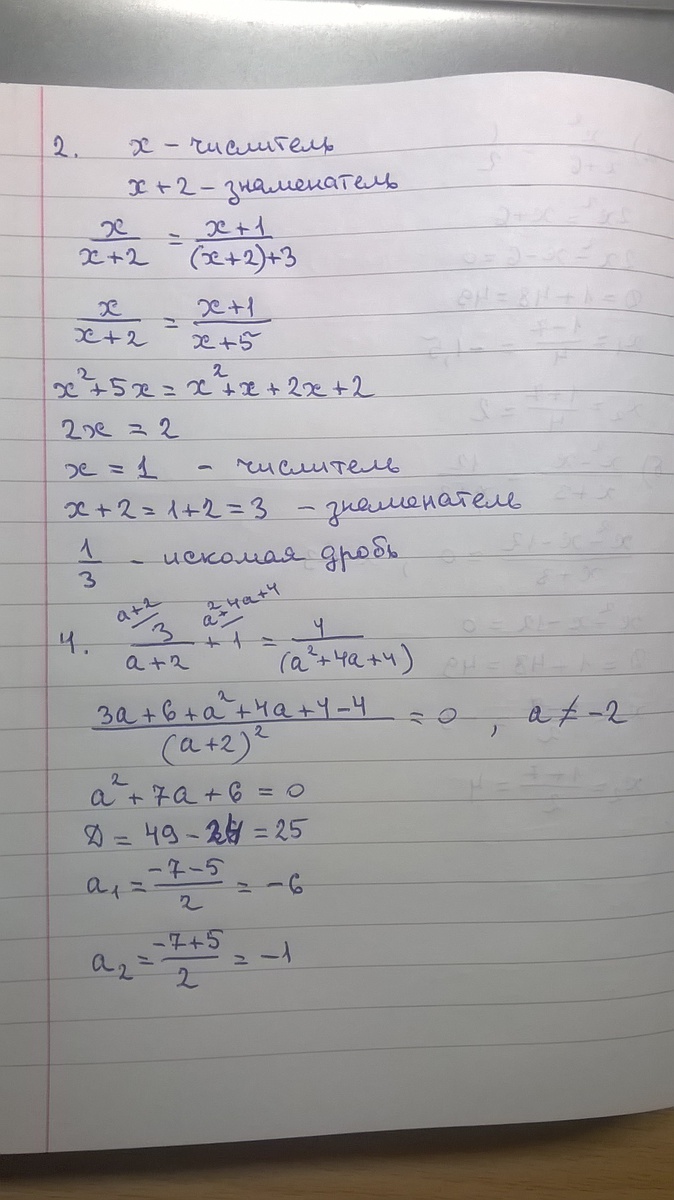 2. x – числитель
x + 2 – знаменатель
x/(x+2) = (x+1)/((x+2)+3)
x/(x+2) = (x+1)/(x+5)
x² + 5x = x² + x + 2x + 2
2x = 2
x = 1 – числитель
x + 2 = 1 + 2 = 3 – знаменатель
1/3 – искомая дробь
a+2 a²+4a+4
4. 3/(a+2) + 1 = 4/(a²+4a+4)
(3a+6+a²+4a+4-4)/(a+2)² = 0 , a ≠ -2
a² + 7a + 6 = 0
D = 49 - 24 = 25
a₁ = (-7-5)/2 = -6
a₂ = (-7+5)/2 = -1